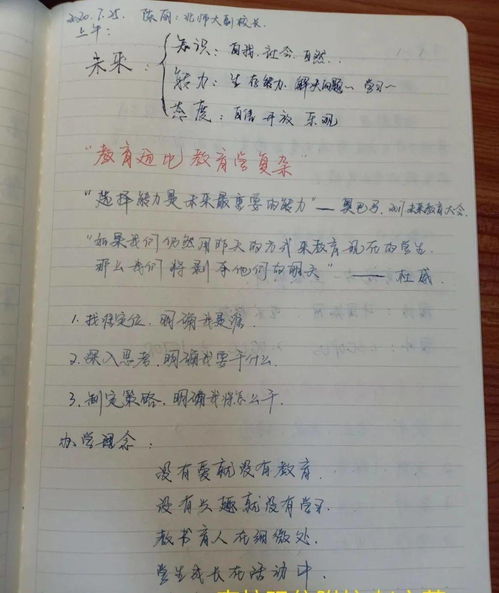 2020.7.25. 陈丽：北师大副校长
上午：
未来：
知识：自我、社会、自然..
能力：生存能力 解决问题~ 学习~
态度：自信 开放 乐观
"教育远比教育学复杂"
"选择能力是未来最重要的能力"——奥巴马，2011未来教育大会.
"如果我们仍然用昨天的方式来教育现在的学生
那么我们将剥夺他们的明天"——杜威
1. 找准定位，明确我是谁.
2. 深入思考，明确我要干什么.
3. 制定策略，明确我将怎么干.
办学理念：
没有爱就没有教育.
没有兴趣就没有学习.
教书育人在细微处.
学生成长在活动中.